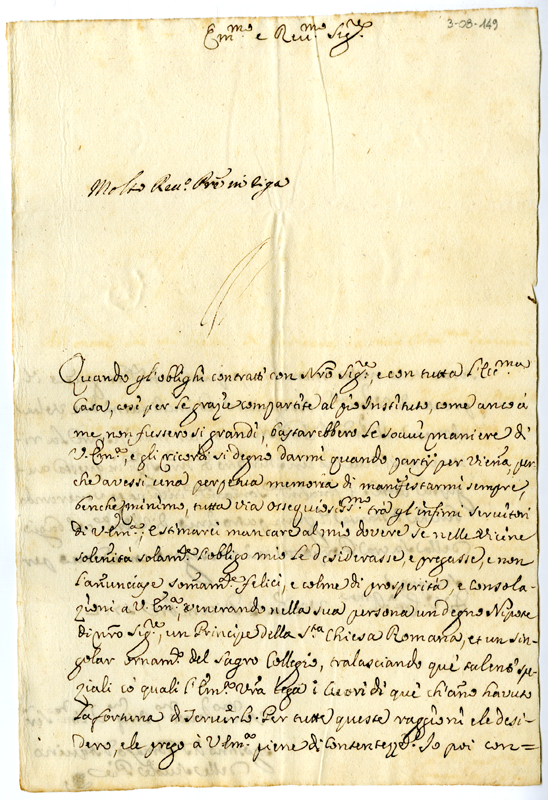 3-08-149
Em.mo e Rev.mo Sig.re
Molto Reu.o Pre in
Quando gl'oblighi contratti con Nro Sig.re, e con tutta l'Ecc.ma
Casa, così per le grazie compartite al pio Instituto, come anco à
me, non fussero si grandi, bastarebbero le soaui maniere di
V. Em.a, e gli ricordi si degnò darmi quando partÿ per Viena, per
che auessi una perpetua memoria di manifestarmi sempre,
benche minimo, tutta via ossequiosiss.mo trà gl'infimi seruitori
di V. Em.a; Estimarei mancare al mio douere se nelle vicine
solenità solam.te l'obligo mio le desiderasse, e pregasse, e non
l'anunciasse somam.te felici, e colme di prosperità, e consola-
zioni a V. Em.a, venerando nella sua persona un degno Nipote
di nro Sig.re, un Principe della S.ta Chiesa Romana, et un sin-
golar ornam.to del Sagro Collegio, tralasciando que' talenti spe-
ziali co' quali l'Em.a Vra lega i Cuori di que' ch'àno hauuto
la fortuna di seruirlo. Per tutte queste raggioni le desi-
dero, e le prego à V. Em.a piene di contentezze. Io poi con=